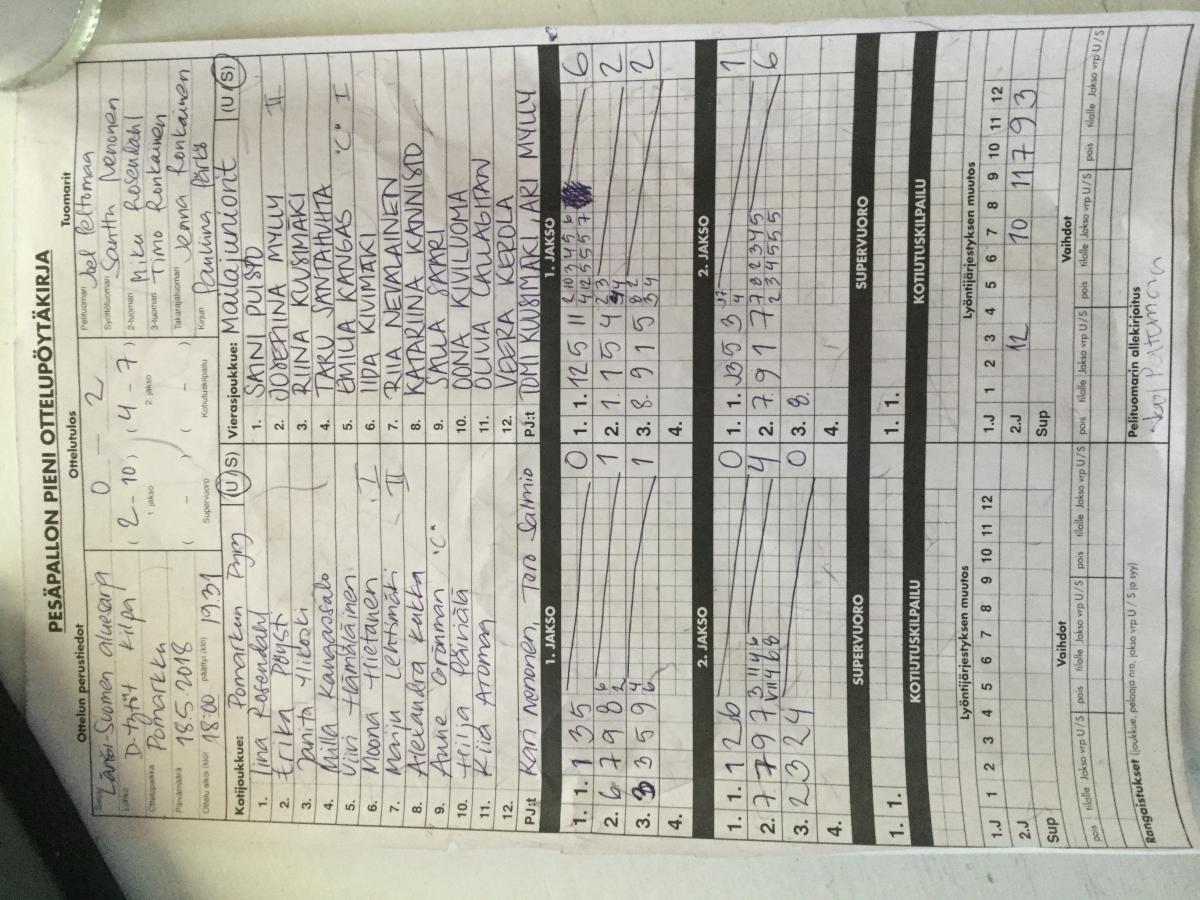 PESÄPALLON PIENI OTTELUPÖYTÄKIRJA
Ottelun perustiedot
Länsi-Suomen aluesarja
Lohko D-tytöt kilpa
Ottelupaikka Pomarkku
Päivämäärä 18.5.2018
Ottelu alkoi (klo) 18:00 päättyi (klo) 19.31
Ottelutulos
0 — 2
( 2 - 10 ) ( 4 - 7 )
1. jakso 2. jakso
( - ) ( - )
Supervuoro Kotiutuskilpailu
Tuomarit
Pelituoman Joel Peltomaa
Syöttötuoman Santtu
2-tuoman Miku Rosendahl
3-tuoman Timo Ronkainen
Takarajatuoman Jenna Ronkainen
Kirjuri Pauliina
Kotijoukkue: Pomarkun Pyry (U/S)
1. Iina Rosendahl
2. Erika Pöysti
3. Janita Ylikoski
4. Milla Kangassalo
5. Viivi Hämäläinen
6. Moona Hietanen I
7. Marju Lehtimäki III
8. Alexandra Kukka
9. Anne Grönman "C"
10. Hilja Päivälä
11. Kiia Aromaa
12.
PJ:t Kari Nenonen, Taro Salmio
Vierasjoukkue: Mailajuniorit (U/S)
1. SAINI PUISTO
2. JOSEFIINA MYLLY II
3. RIINA KUSIMÄKI
4. TARU SANTAHUHTA
5. EMILIA KANGAS "C" I
6. IIDA KIVIMÄKI
7. RIIA NEVALAINEN
8. KATARIINA KANNISTO
9. SALLA SAARI
10. OONA KIVILUOMA
11. OLIVIA
12. VEERA KEROLA
PJ:t TOMI KUUSIMÄKI, ARI MYLLY
1. JAKSO
1. 1. 1 3 5 0
2. 6 7 9 8 2 6 1
3. 3 3 5 9 6 4 1
4.
1. JAKSO
1. 1. 12 5 11 6
2. 1 1 5 4 2
3. 8 9 1 5 2
4.
2. JAKSO
1. 1. 1 12 6 0
2. 7 7 9 7 4
3. 2 3 2 4 0
4.
2. JAKSO
1. 1. 3 5 3 4 1
2. 7 9 1 7 6
3. 8
4.
SUPERVUORO
1. 1.
SUPERVUORO
1. 1.
KOTIUTUSKILPAILU
KOTIUTUSKILPAILU
Lyöntijärjestyksen muutos
1 2 3 4 5 6 7 8 9 10 11 12
1.J
2.J
Sup
Lyöntijärjestyksen muutos
1 2 3 4 5 6 7 8 9 10 11 12
1.J
2.J 12 10 11 7 9 3
Sup
Vaihdot
pois tilalle Jakso vrp U/S pois tilalle Jakso vrp U/S pois tilalle Jakso vrp U/S
Vaihdot
pois tilalle Jakso vrp U/S pois tilalle Jakso vrp U/S pois tilalle Jakso vrp U/S
Rangaistukset (joukkue, pelaaja nro, jakso vrp U / S ja syy)
Pelituomarin allekirjoitus
Joel Peltomaa